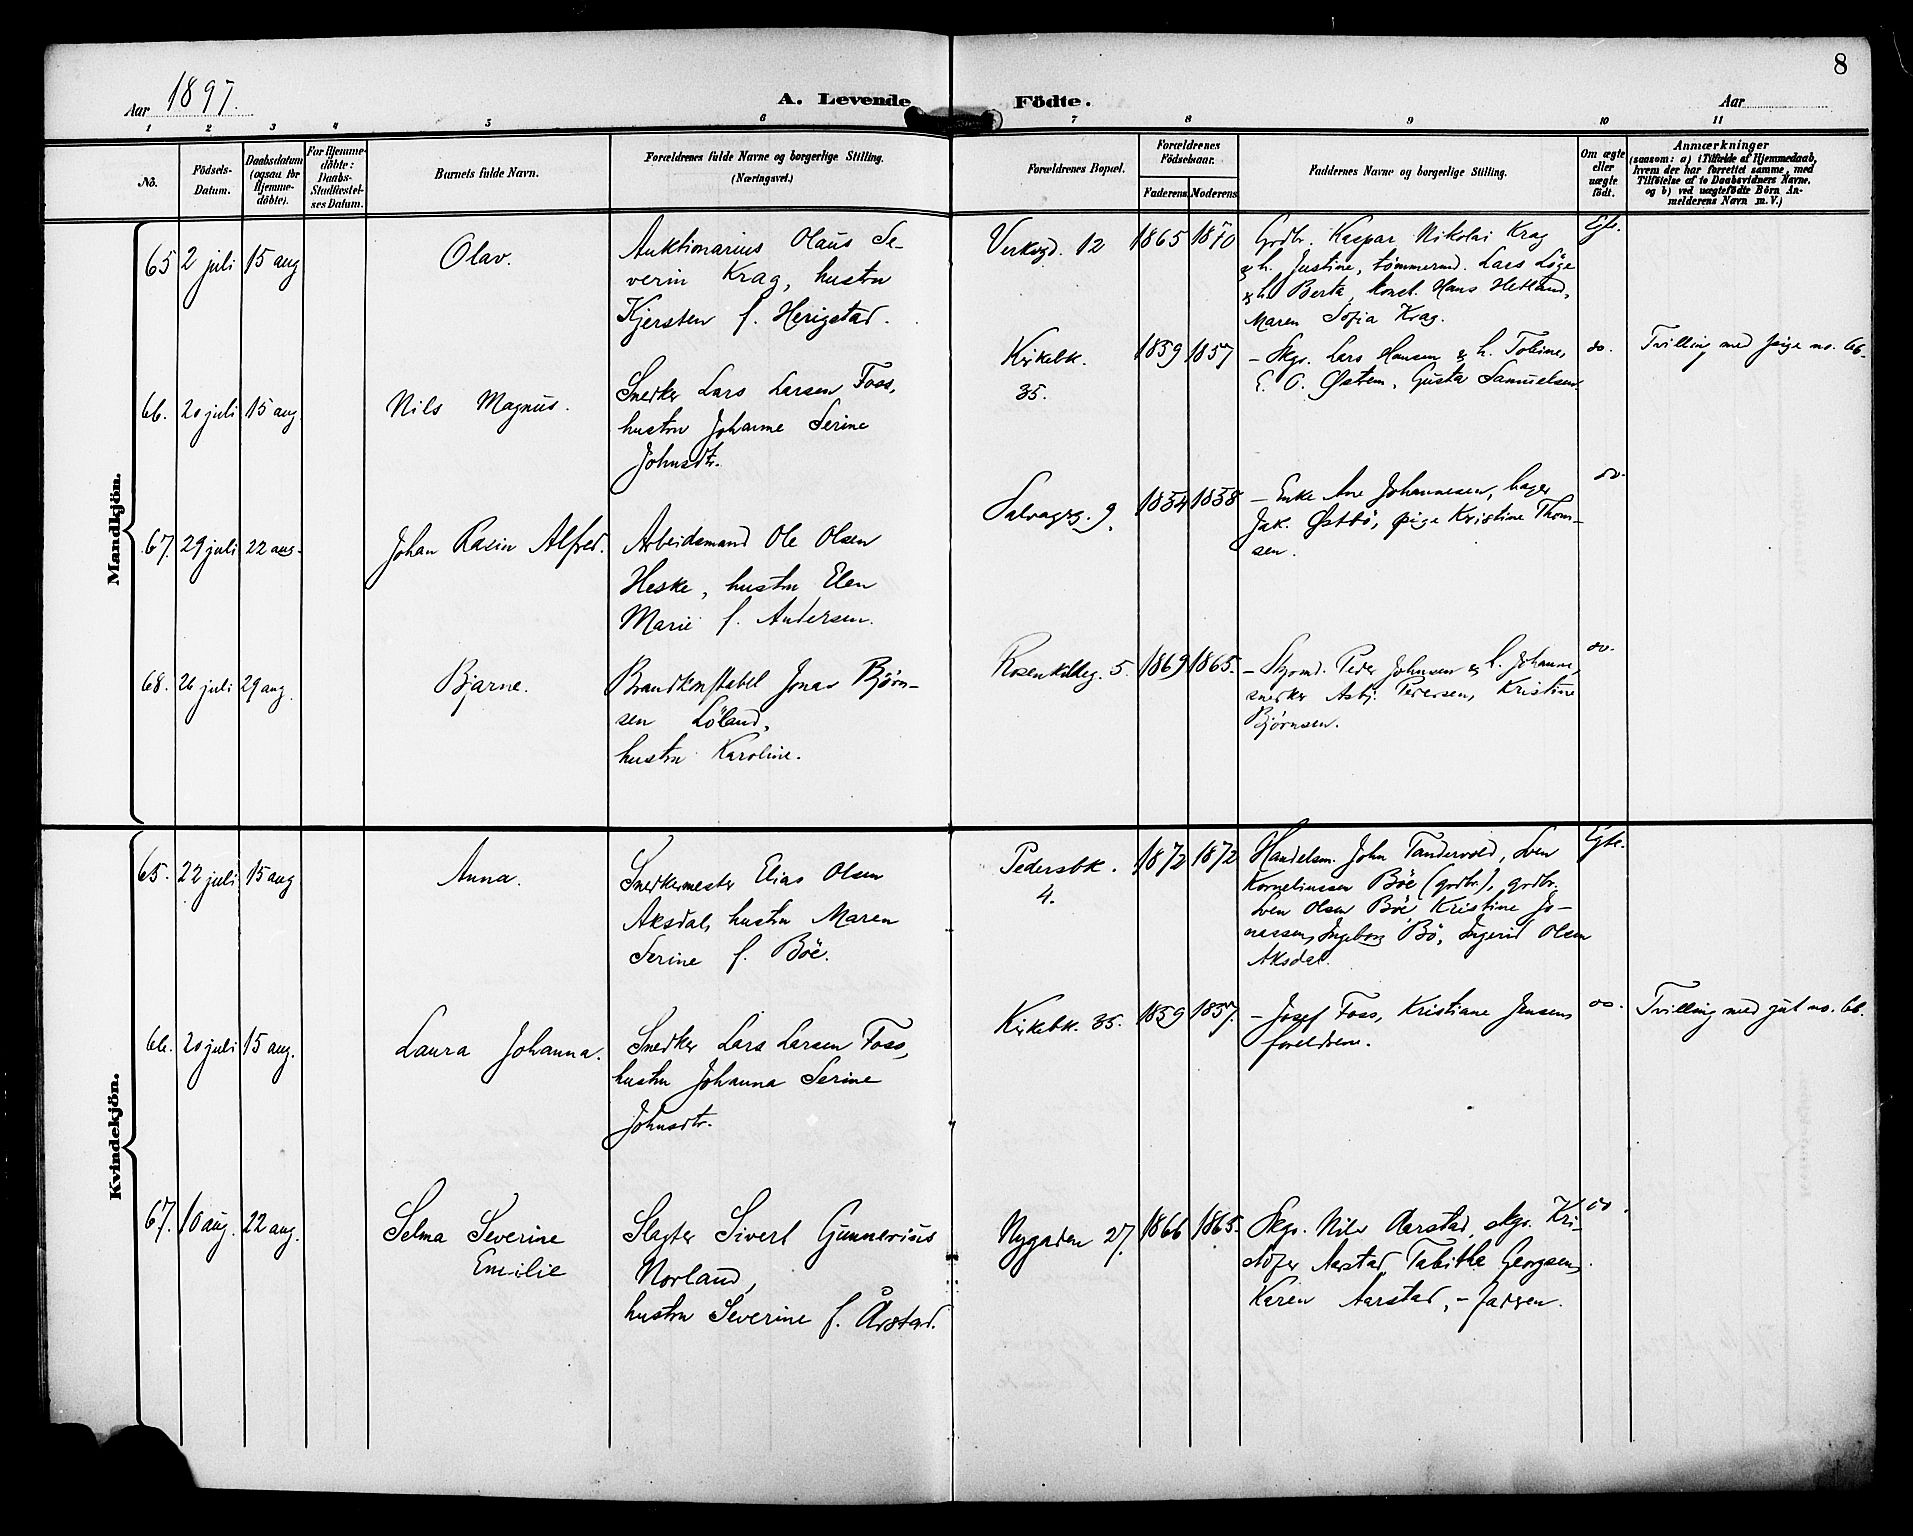 8
Aar 1897.
A. Levende Födte.
Aar
1 2 3 4 5 6 7 8 9 10 11
No.
Födsels-
Datum.
Daabsdatum
(ogsaa for
Hjemme-
döbte).
For Hjemme-
döbte:
Daabs-
Stadfæstel-
ses Datum.
Barnets fulde Navn.
Forældrenes fulde Navne og borgerlige Stilling.
(Næringsvei.)
Forældrenes Bopæl.
Forældrenes
Födselsaar.
Faderens
Moderens
Faddernes Navne og borgerlige Stilling.
Om ægte
eller
uægte
födt.
Anmærkninger
(saasom: a) i Tilfælde af Hjemmedaab,
hvem der har forrettet samme, med
Tilföielse af to Daabsvidners Navne,
og b) ved uægtefödte Börn An-
melderens Navn m. V.)
Mandkjön.
65 2 juli 15 aug
Olav.
Auktionarius Olaus Se-
verin Krag, hustru
Kjersten f. Herigstad.
Verksgd. 12
1865 1870
Grdbr. Kaspar Nikolai Krag
& h. Justine, tømmermd. Lars Löge
& h. Berta, konst. Hans Hetland,
Maren Sofia Krag.
Egte.
66. 20 juli 15 aug.
Nils Magnus.
Snedker Lars Larsen Foss,
hustru Johanne Serine
Johnsdtr.
Kirkebk.
35.
1859 1857
- Skgr. Lars Hansen & h. Tobine,
E. O. Østrem, Gusta Samuelsen.
do.
Tvilling med pige no. 66.
67. 29 juli 22 aug.
Johan Rasin Alfred.
Arbeidsmand Ole Olsen
Heske, hustru Elen
Marie f. Andersen.
Salvagrg. 9.
1854 1858
- Enke Ane Johannesen, bager
Jak. Østbö, pige Kristine Thom-
sen.
do.
68. 26 juli 29 aug.
Bjarne.
Brandkonstabel Jonas Bjørn-
sen Löland,
hustru Karoline.
Rosenkildeg. 5.
1869 1865.
- Styrmd. Peder Johnsen & h. Johanne,
snedker Asbj. Pedersen, Kristine
Bjørnsen.
do.
Kvindekjön.
65. 22 juli 15 aug
Anna.
Snedkermester Elias Olsen
Aksdal, hustru Maren
Serine f. Böe.
Pedersbk.
4.
1872 1872
Handelsm. John Tandervold, Sven
Korneliussen Böe (grdbr.), grdbr.
Sven Olsen Böe, Kristine Jo-
nassen, Ingeborg Bö, Ingerid Olsen
Aksdal.
Egte.
66. 20 juli 15 aug.
Laura Johanna.
Snedker Lars Larsen Foss,
hustru Johanna Serine
Johnsdtr.
Kirkebk. 35.
1859 1857.
- Josef Foss, Kristiane Jensen,
foreldrene.
do.
Tvilling med gut no. 66.
67. 10 aug. 22 aug.
Selma Severine
Emilie
Slagter Sivert Gunnerius
Norland,
hustru Severine f. Årstad.
Nygaden 27.
1866 1865.
Skgr. Nils Aarstad, skgr. Kri-
stofer Aarstad, Tabitha Georgsen,
Karen Aarstad, - faderen.
do.